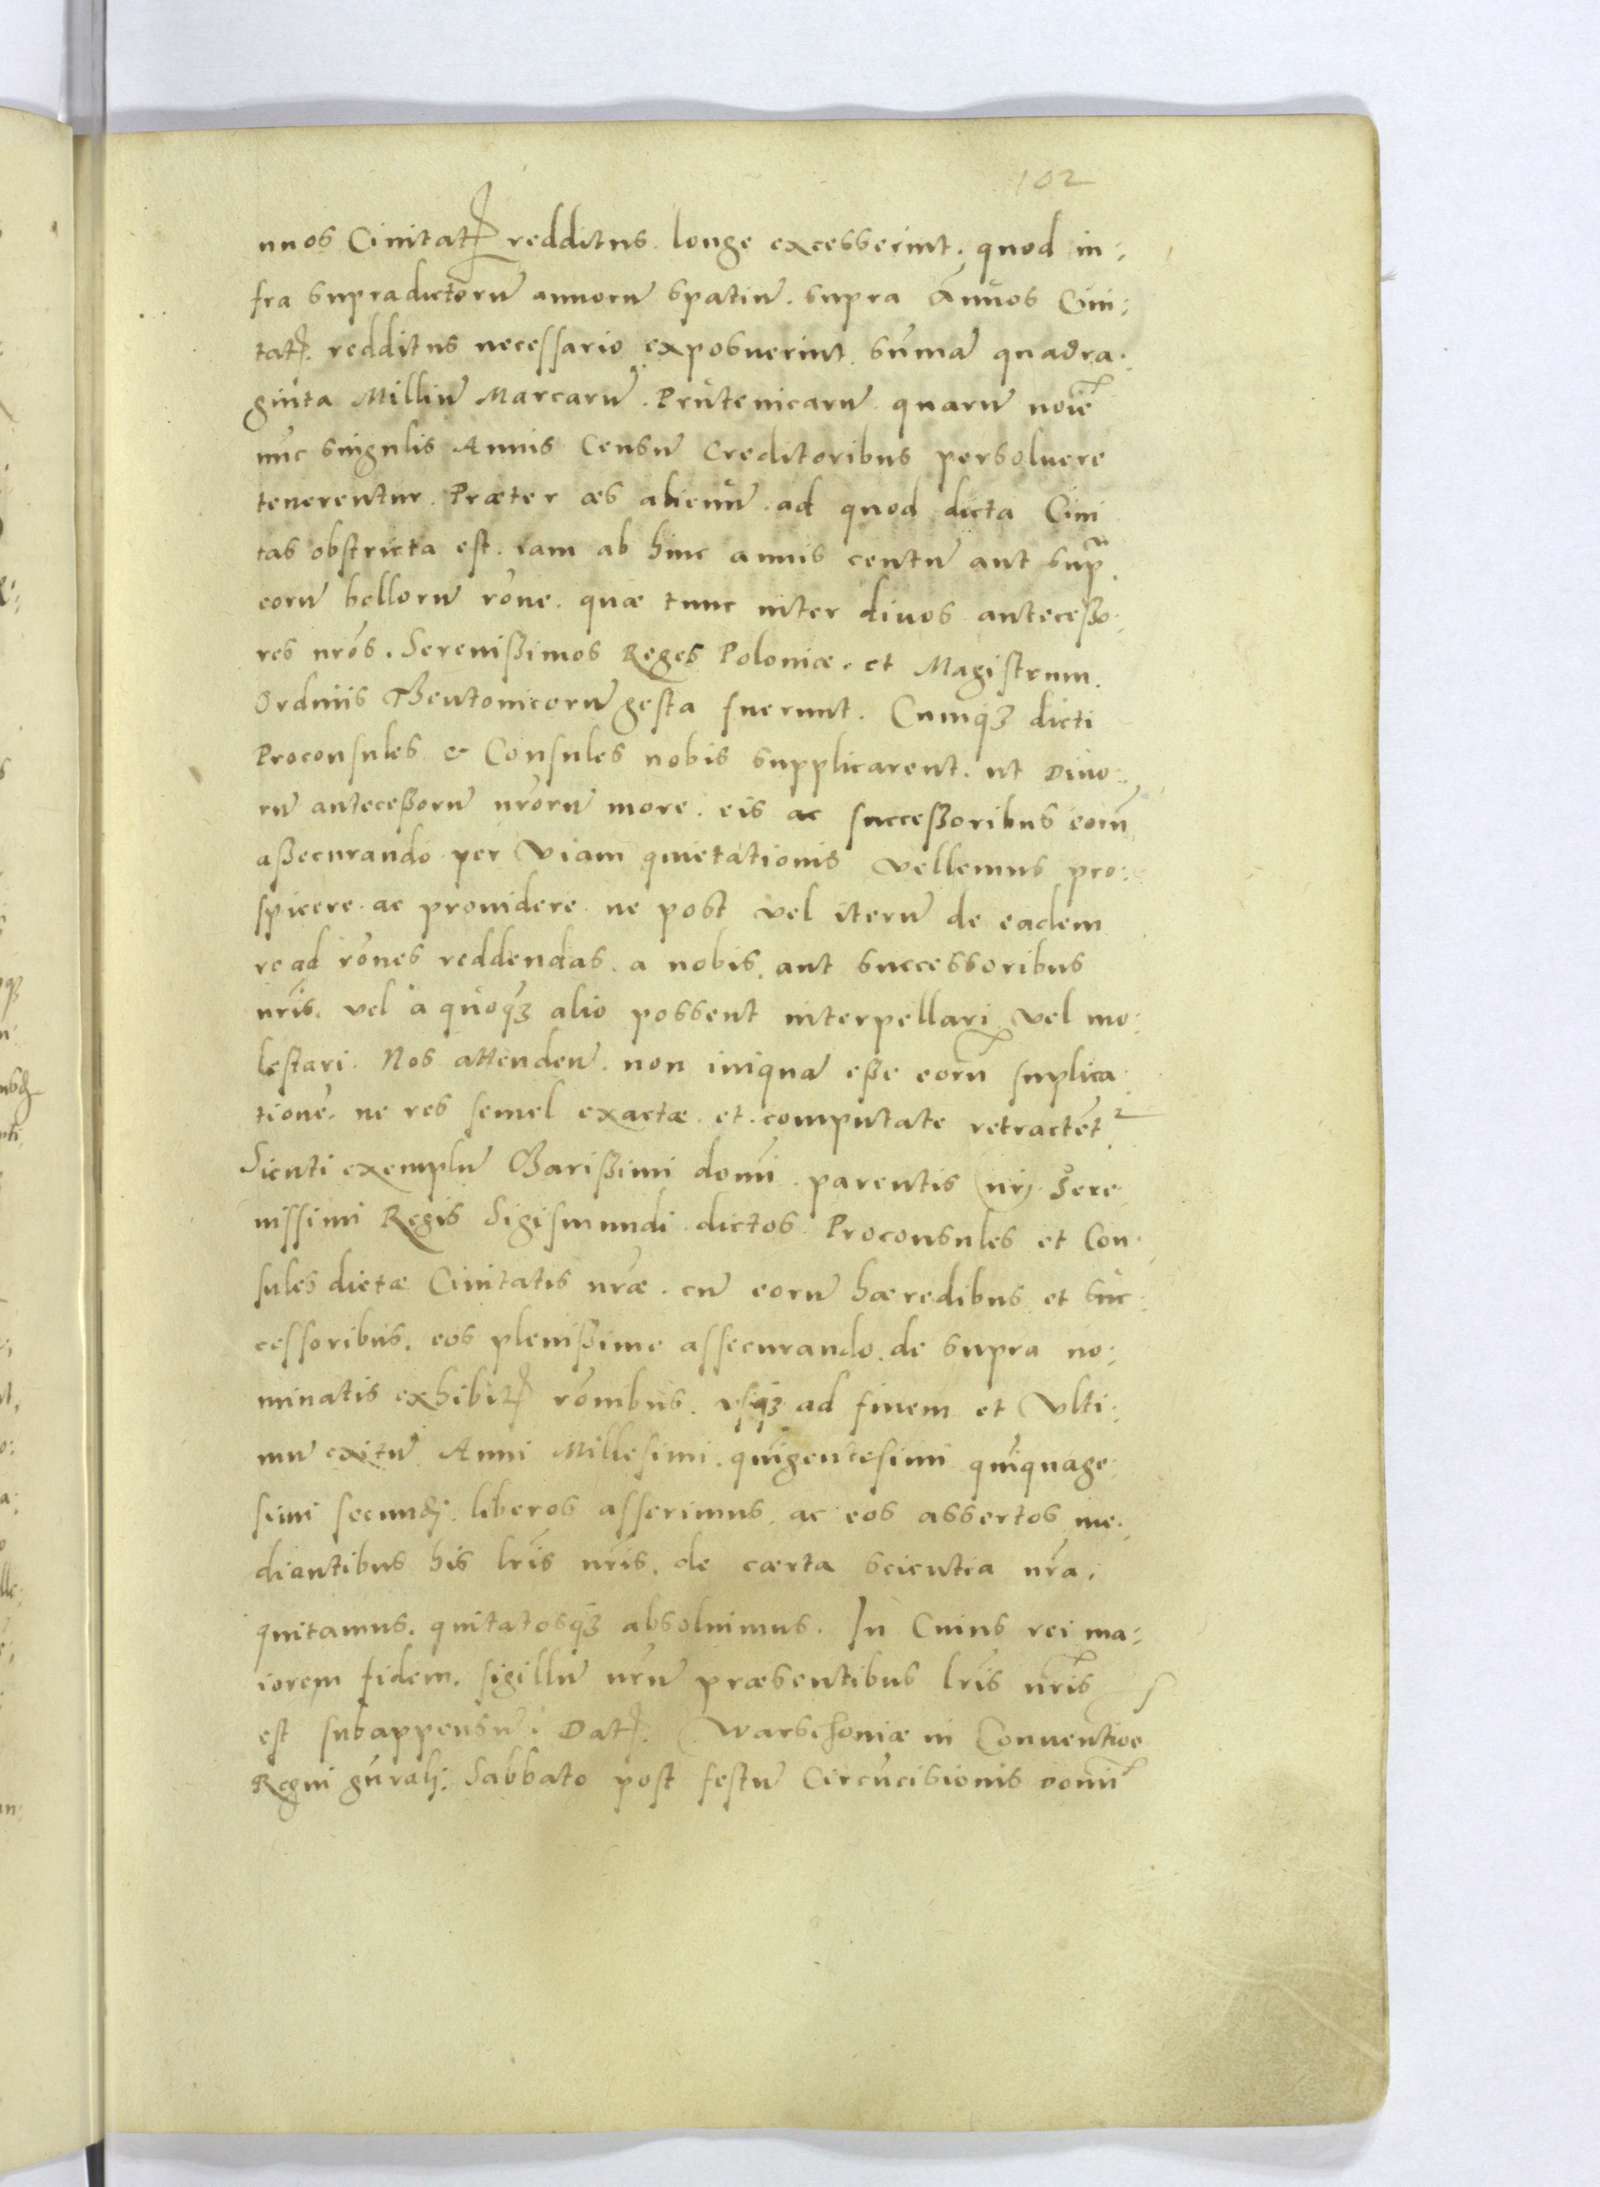 102
nuos Ciuitatꝭ redditus. longe excesserint. quod in:
fra supradictorũ annorũ spatiũ. supra Annuos Ciui:
tatꝭ. redditus necessario exposuerint. sũmã quadra:
ginta Milliũ Marcarũ. Prutenicarũ quarũ noiẽ
nũc singulis Annis Censũ Creditoribus persoluere
tenerentur. Præter æs alienũ. ad quod dicta Ciui
tas obstricta est. iam ab hinc annis centũ aut supᵃ.
eorũ bellorũ rõne. quæ tunc inter diuos antecesso:
res nrõs. Serenißimos Reges Poloniæ. et Magistrum.
Ordinis Theutonicorũ gesta fuerunt. Cumqꝫ dicti
Proconsules & Consules nobis supplicarent. ut Diuo:
rũ anteceßorũ nrõrũ more. eis ac succeßoribus eorũ
aßecurando per Viam quietationis vellemus pro:
spicere. ac prouidere. ne post vel iterũ de eadem
re ad rõnes reddendas. a nobis. aut successoribus
nrĩs. vel a quoqꝫ alio possent interpellari vel mo:
lestari. Nos attendeñ. non iniquã eße eorũ suplica
tionẽ. ne res semel exactæ. et. computate retractẽt²
Sicuti exemplũ Charißimi domĩ. parentis nrĩ. Sere
nissimi Regis Sigismundi. dictos Proconsules et Con:
sules dictæ Ciuitatis nræ. cũ eorũ hæredibus et suc:
cessoribus. eos plenißime assecurando. de supra no:
minatis exhibitꝭ rõnibus. vsqꝫ ad finem et Vlti:
mũ exitũ Anni Millesimi. quĩgentesimi quĩquage:
simi secundj. liberos asserimus. ac eos assertos me:
diantibus his lrĩs nrĩs. de cærta scientia nrã.
quitamus. quitatosqꝫ absoluimus. In Cuius rei ma:
iorem fidem. sigillũ nrũ præsentibus lrĩs nrĩs
est subappensũ. Datꝭ. Warschouiæ in Conuentioe
Regni gñralj. Sabbato post festũ Circũcisionis domĩ